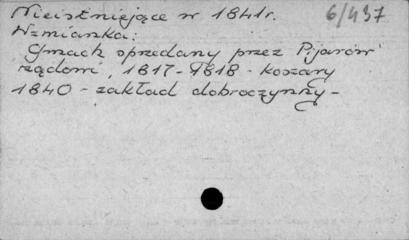 Nieistniejące w 1841r. 6/437
Wzmianka:
Gmach sprzedany przez Pijarów
rządowi, 1817-1818 - koszary
1840 - zakład dobroczynny -